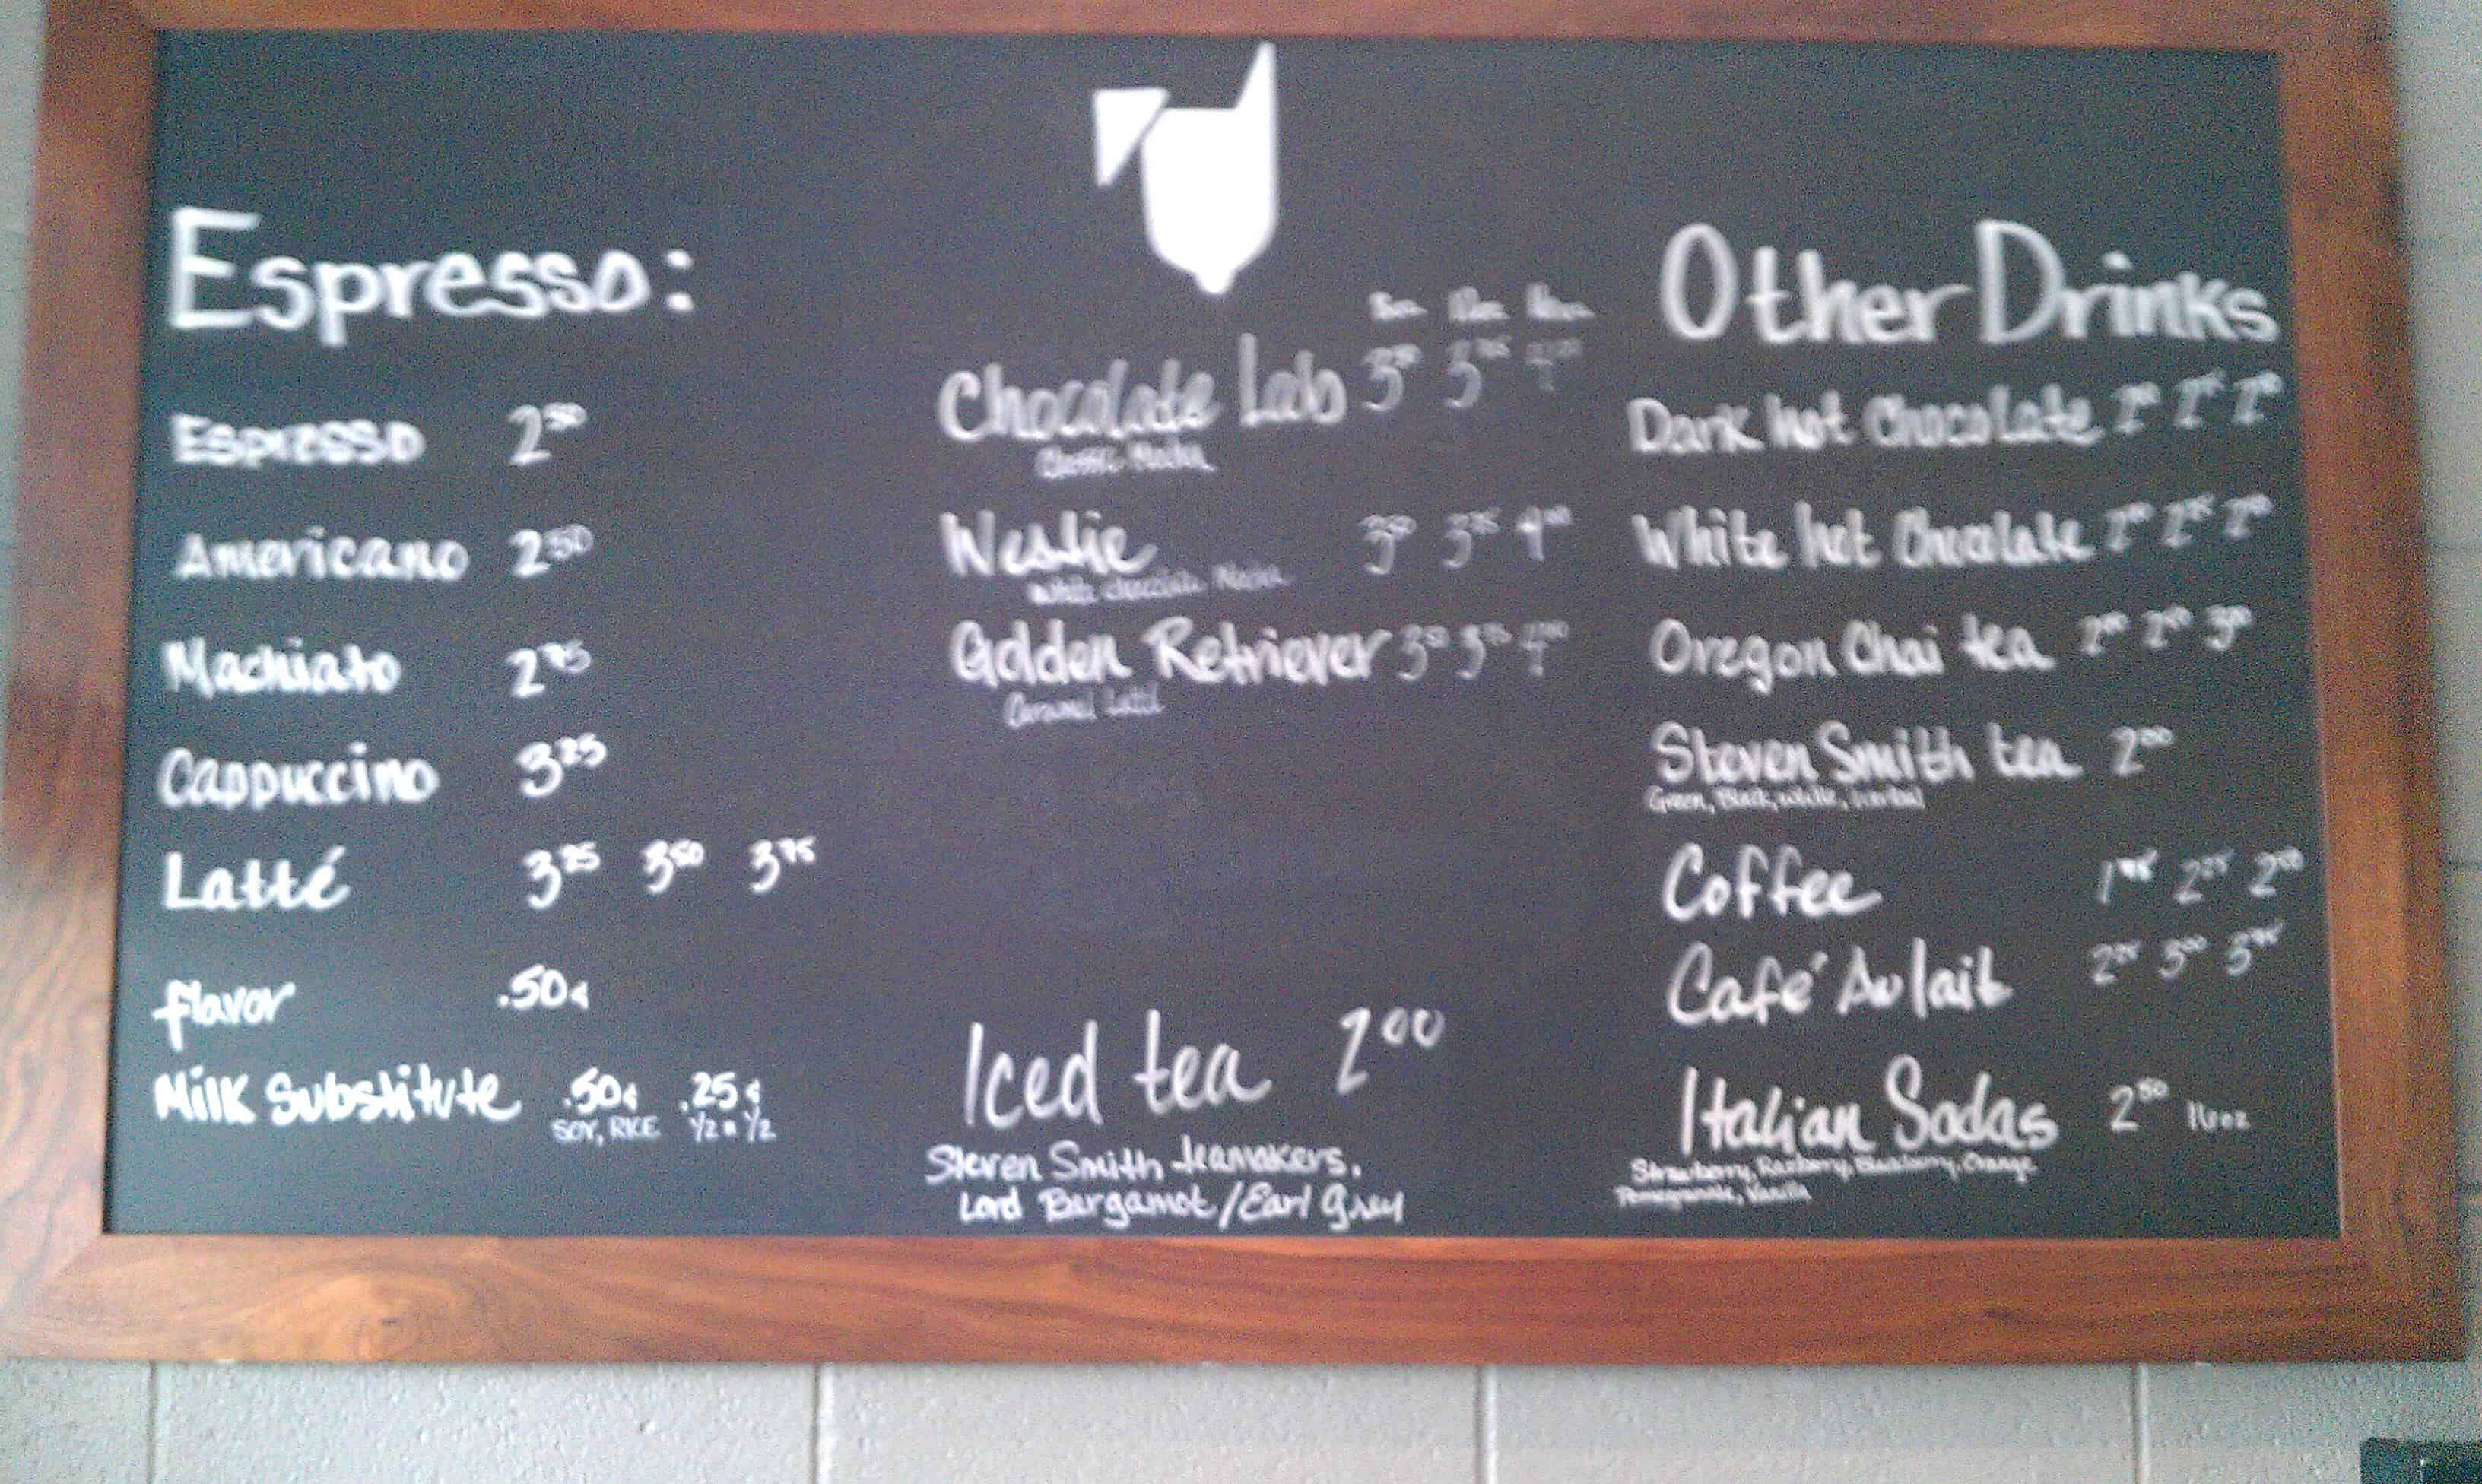 Espresso:
Espresso 2.50
Americano 2.50
Machiato 2.75
Cappuccino 3.25
Latté 3.25 3.50 3.75
flavor .50¢
Milk Substitute .50¢ .25¢
SOY, RICE ½ n ½
8oz 12oz 16oz
Chocolate Lab 3.50 3.75 4.00
Classic Mocha
Westie 3.50 3.75 4.00
White chocolate Mocha
Golden Retriever 3.50 3.75 4.00
Caramel Latté
Iced tea 2.00
Steven Smith teamakers,
Lord Bergamot/Earl Grey
Other Drinks
Dark hot Chocolate
White hot Chocolate
Oregon Chai tea
Steven Smith tea 2.00
Green, Black, white, herbal
Coffee
Café Au lait
Italian Sodas 2.50 16oz
Strawberry, Rasberry, Blackberry, Orange
Pomegranate, Vanilla